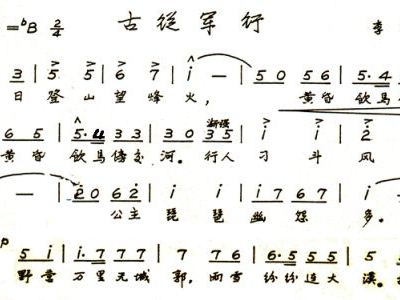 =ᵇB 2/4 古從军行 李
3 | 5 5 | 6 7 | i — | 5 0 5 6 | 5·4
日 登 山 望 烽 火, 黄昏 飲馬
6 5 | 5· 3 3 | 3 0 3 5 | i i | 2
黄昏 飲馬傍交 河。行人 刁 斗 风
— | 2 0 6 2 | i i | i 7 6 7 | i
公主 琵 琶 幽 怨 多。
P 5 i | i· 7 7 7 | 7 7 6 | 6·5 5 5 | 5
野营 万里无城 郭, 雨雪 纷纷连大 漠。